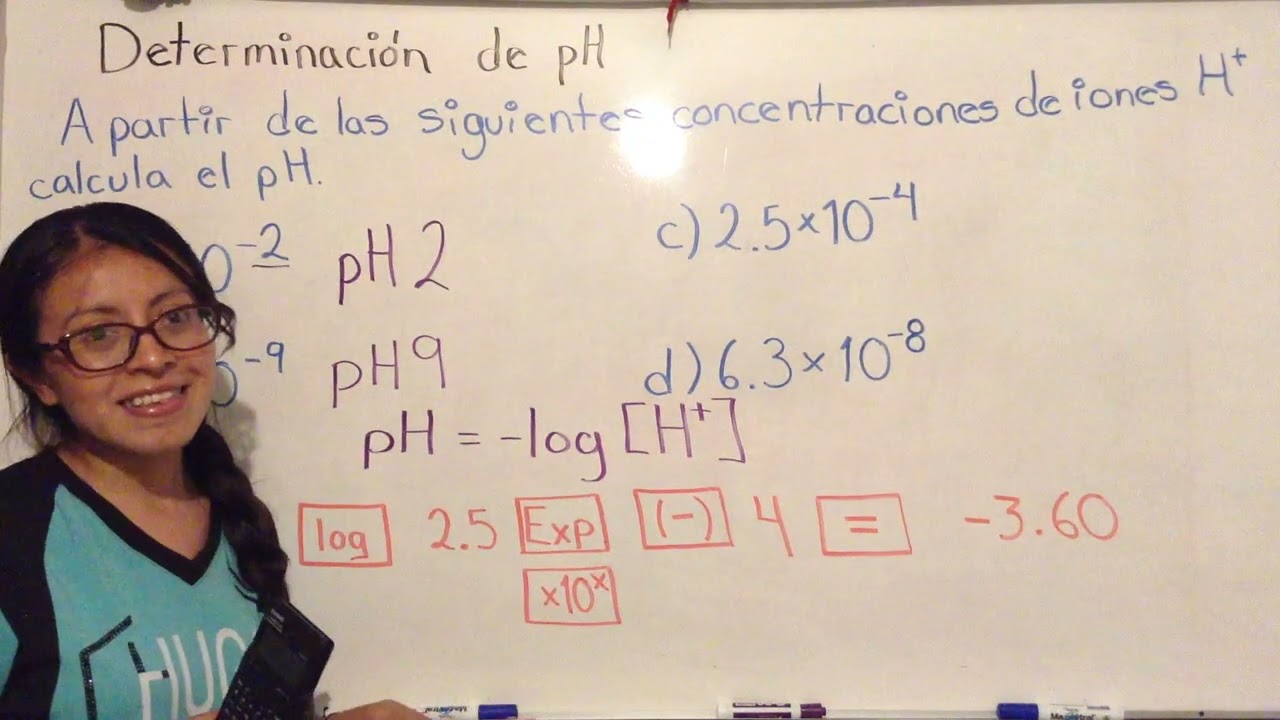 Determinación de pH
A partir de las siguientes concentraciones de iones H⁺
calcula el pH.
0⁻² pH 2
c) 2.5×10⁻⁴
0⁻⁹ pH 9
d) 6.3×10⁻⁸
pH = -log [H⁺]
log 2.5 Exp (-) 4 = -3.60
×10ˣ